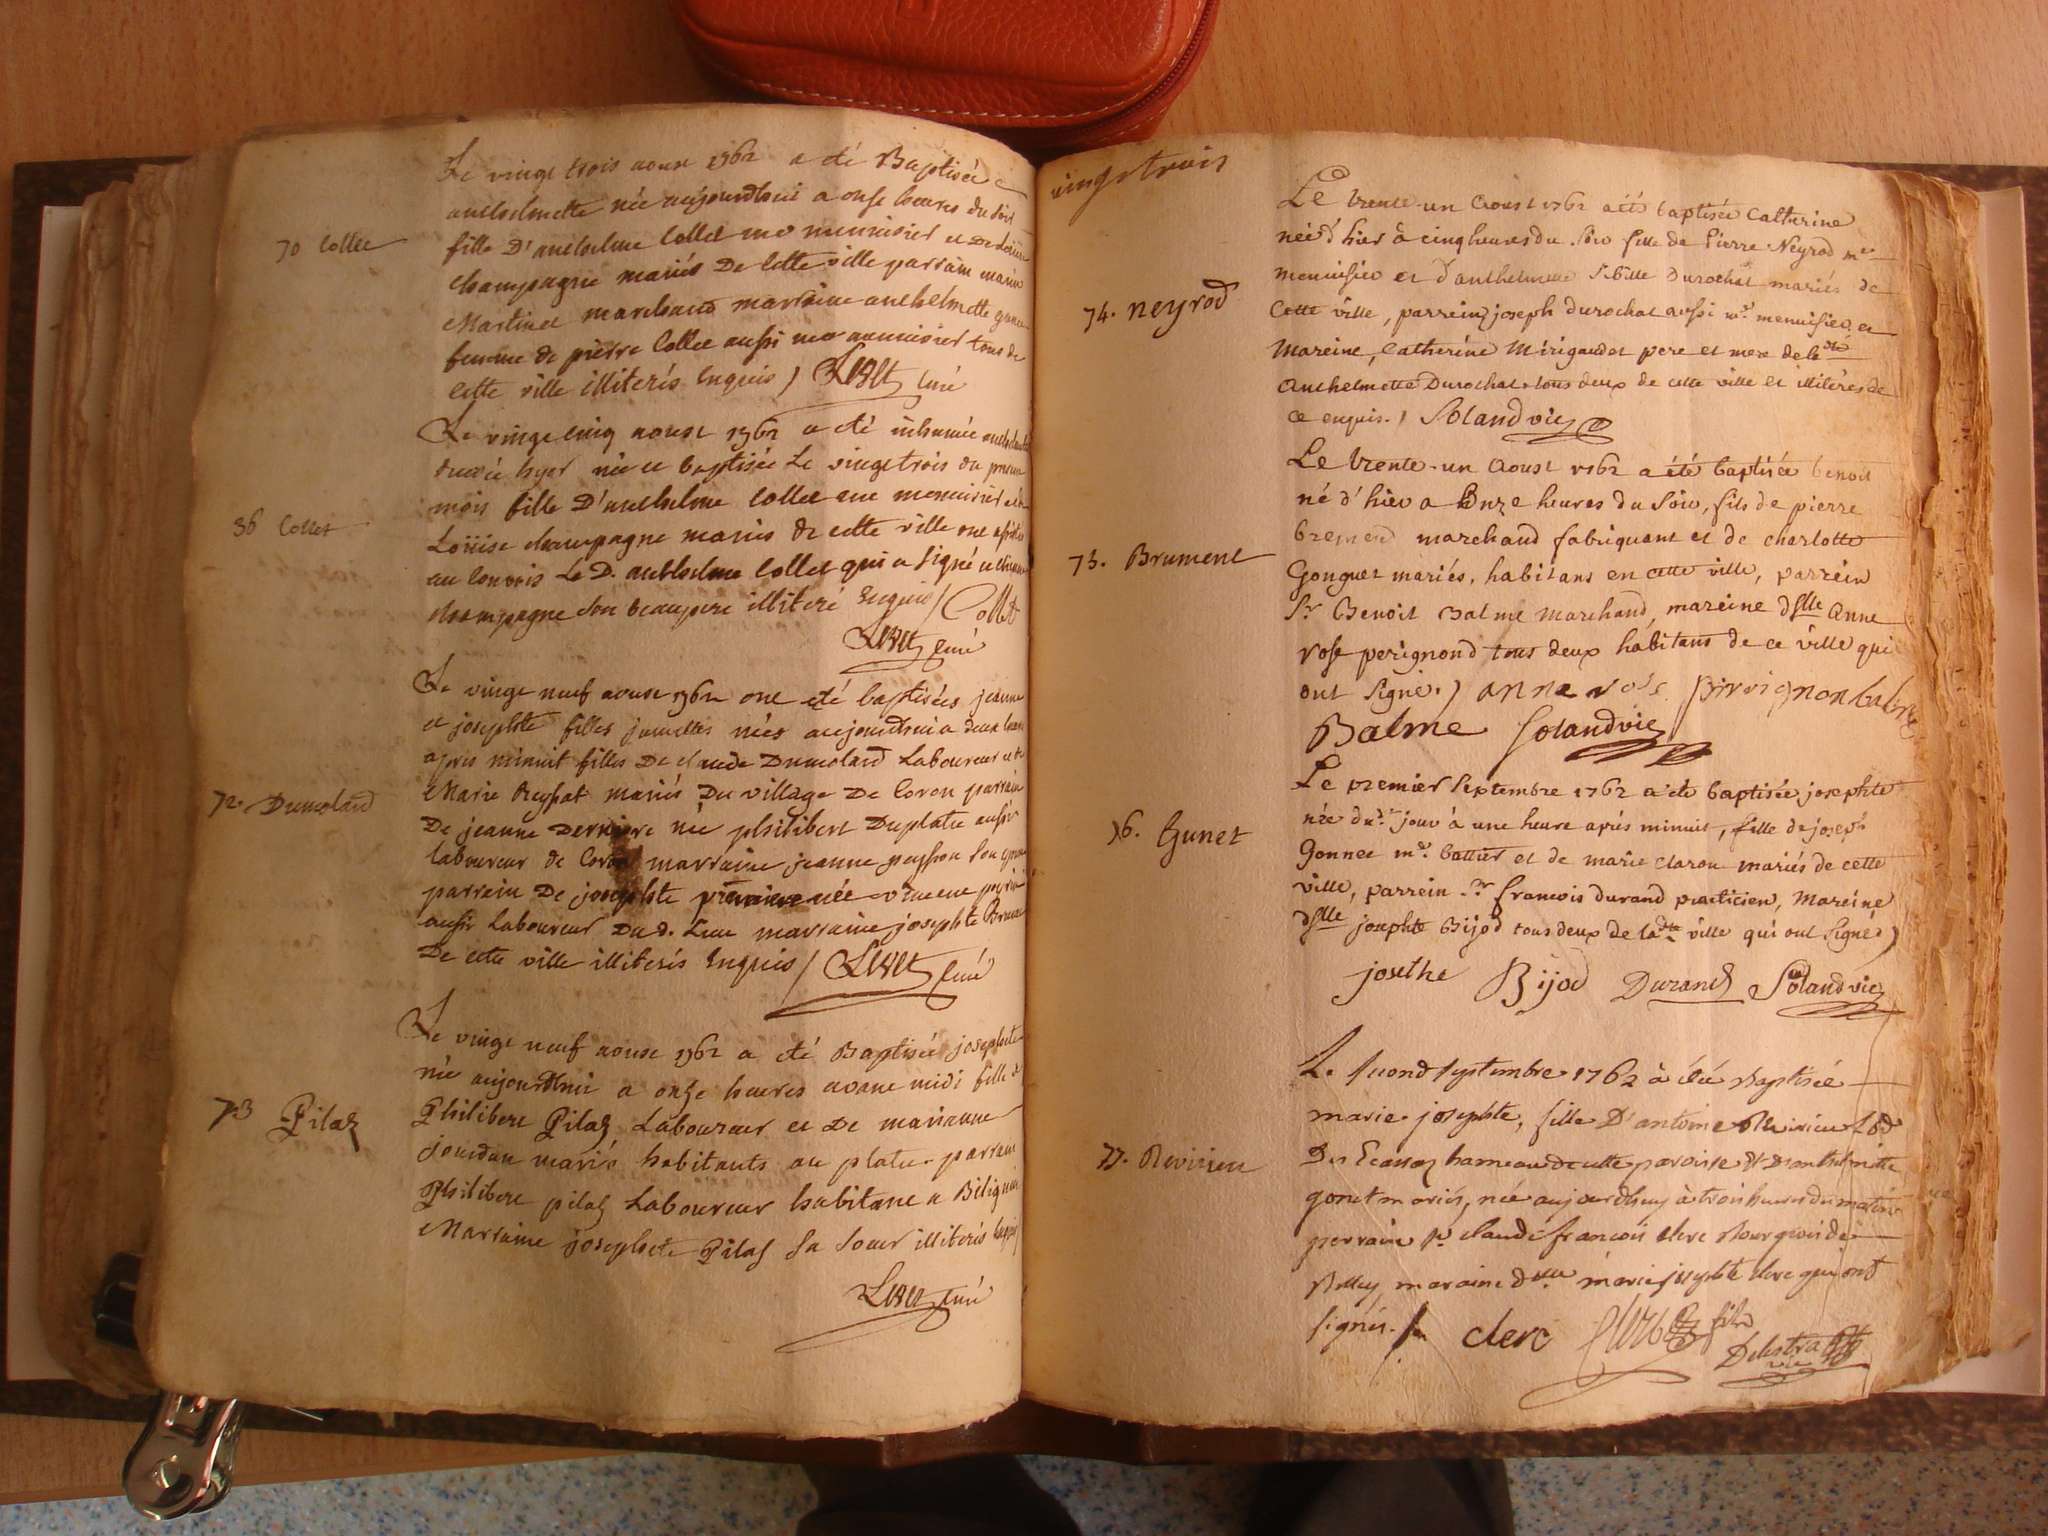 70 Collet
Le vingt trois aoust 1762 a été Baptisée
anthelmette née aujourdhui a onse heures du soir
fille D'anthelme Collet me menuisier et De Loüise
champagne mariés De Cette ville parrain
Martinet marchand marraine anthelmette
femme de pierre Collet aussi me menuisier tous de
cette ville illiterés Enquis / Livet Curé
36 Collet
Le vingt cinq aoust 1762 a été inhumée
decedée hyer née et baptisée Le vingt trois du present
mois fille D'anthelme Collet me menuisier et de
Loüise champagne mariés de cette ville ont assistés
au Convois Le D. anthelme Collet qui a signé et
champagne son beaupere illiteré Enquis / Collet
Livet Curé
72 Dumoland
Le vingt neuf aoust 1762 ont eté baptisées jeanne
et josephte filles jumelles nées aujourdhui a deux heures
apres minuit filles De claude Dumoland Laboureur et de
Marie Reyssat mariés Du village De Coron parrain
De jeanne Derniere née philibert Duplatre aussi
laboureur de Coron marraine jeanne peysson son
parrein De josephte premiere née
aussi Laboureur Du d. Lieu marraine josephte
De cette ville illiterés Enquis / Livet Curé
73 Pilaz
Le vingt neuf aoust 1762 a été Baptisée josephte
née aujourdhui a onze heures avant midi fille de
Philibert Pilaz Laboureur et De marianne
jourdan mariés habitants au platre parrain
Philibert pilaz Laboureur habitant a Biligniu
Marraine josephte Pilaz sa soeur illiterés Enquis /
Livet Curé
vingt trois
74. Neyrod
Le trente-un Aoust 1762 a été baptisée Catherine
née d'hier à cinq heures du soir fille de Pierre Neyrod me
menuisier et d'anthelmette Sibille Durochat mariés de
Cette ville, parrein joseph durochat aussi me menuisier et
Mareine, Catherine Mérigaudet pere et mere de ladte
Anthelmette Durochat tous deux de cette ville et illitérés de
ce enquis. / Solandvic
75. Brument
Le trente-un Aoust 1762 a été baptisée benoit
né d'hier a Onze heures du soir, fils de pierre
bremend marchand fabriquant et de charlotte
Gonguet mariés, habitans en cette ville, parrein
Sr Benoit Balme Marchand, mareine dslle Anne
rose perignond tous deux habitans de ce ville qui
ont signé. / anne rose
Balme Solandvic
76. Gunet
Le premier Septembre 1762 a été baptisée josephte
née du.t jour à une heure aprés minuit, fille de joseph
Gonnet me. battier et de marie claron mariés de cette
ville, parrein Sr francois durand praticien, Mareine
dslle josephte Bijod tous deux de ladte ville qui ont Signés /
josethe Bijod Durand Solandvic
77. Revirieu
Le second septembre 1762 à été Baptisée
marie josephte, fille D'antoine Revirieu
Des Ecassaz hameau de cette paroisse & D'anthelmette
gonet mariés, née aujourdhuy à trois heures du matin
perrain Sr claude françois clerc Bourgeois de
Belley, maraine dlle marie josephte clerc qui ont
signés. / clerc fils